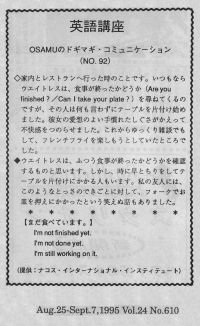 英語講座
OSAMUのドギマギ・コミュニケーション
(NO. 92)
◇家内とレストランへ行った時のことです。いつもなら
ウエイトレスは、食事が終ったかどうか（Are you
finished？／Can I take your plate？）を尋ねてくるの
ですが、その人は何も言わずにテーブルを片付け始め
ました。彼女の愛想のよい手慣れたしぐさがかえって
不快感をつのらせました。これからゆっくり雑談でも
して、フレンチフライを楽しもうとしていたところで
した。
◆ウエイトレスは、ふつう食事が終ったかどうかを確認
するものと思います。しかし、時に早とちりをしてテ
ーブルを片付けにかかる人もいます。私の友人には、
このようなとっさのできごとに対して、フォークでお
皿を押えにかかったという笑えぬ話もありました。
＊ ＊ ＊ ＊ ＊ ＊ ＊ ＊
【まだ食べています。】
I'm not finished yet.
I'm not done yet.
I'm still working on it.
（提供：ナコス・インターナショナル・インスティテュート）
Aug.25-Sept.7,1995 Vol.24 No.610